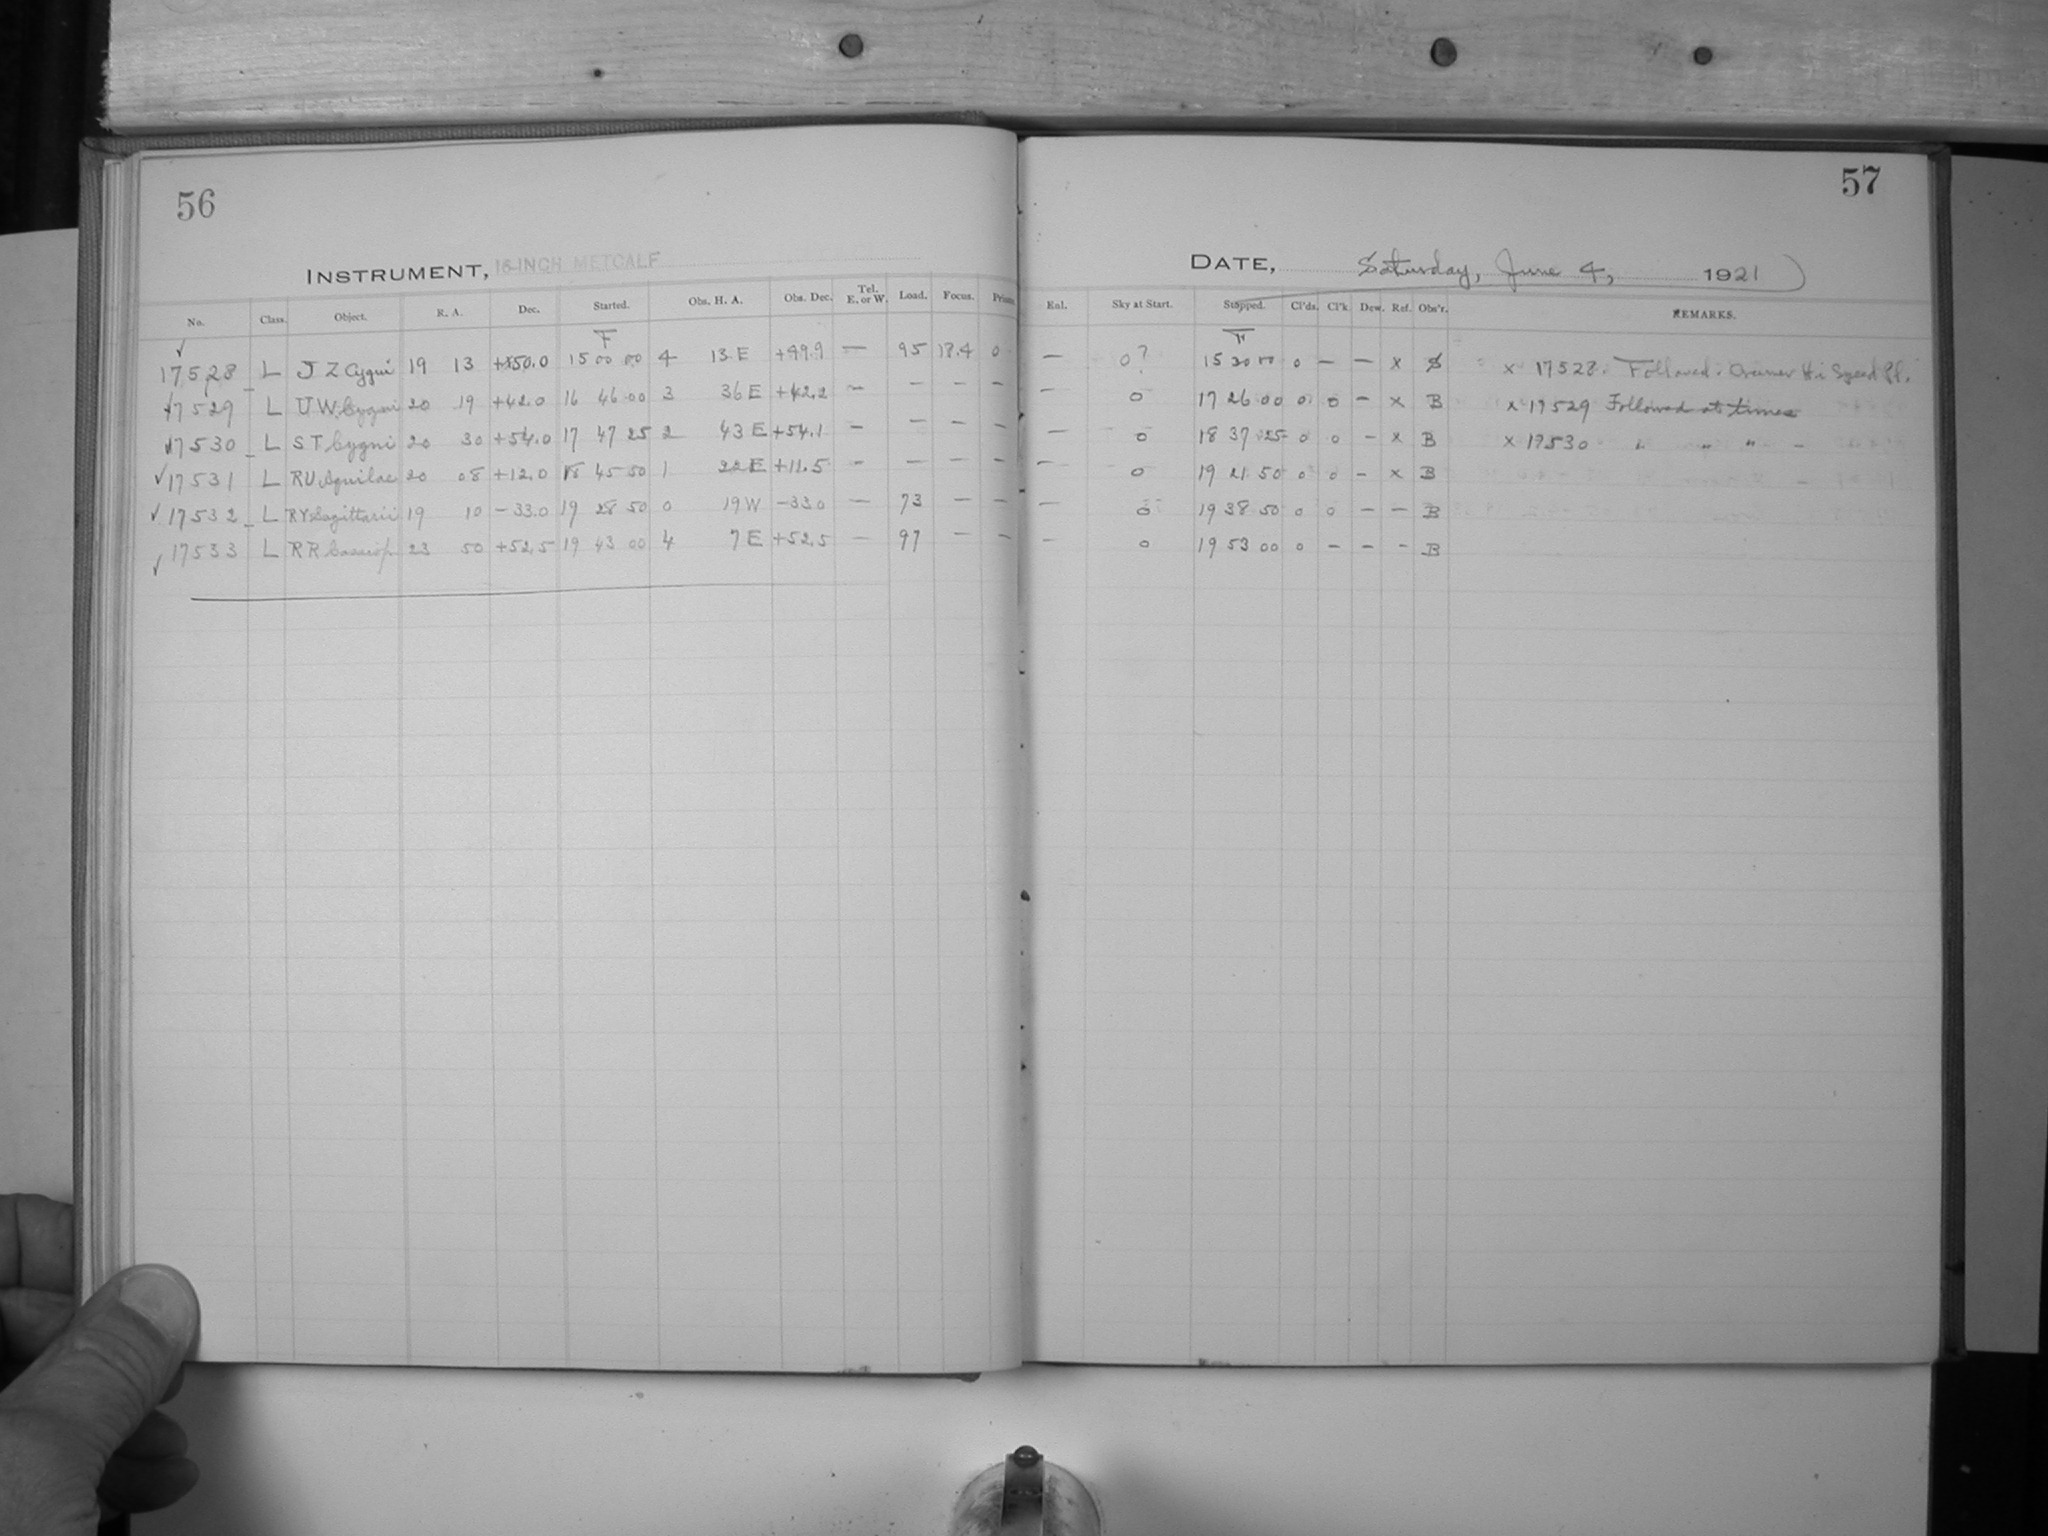 56
INSTRUMENT, 16-INCH METCALF
No. Class. Object. R. A. Dec. Started. Obs. H. A. Obs. Dec. Tel. E. or W. Load. Focus. Prism.
F
✓
17528 L J Z Cygni 19 13 +50.0 15 00 00 4 13 E +49.9 — 95 18.4 0
17529 L U W. Cygni 20 19 +42.0 16 46 00 3 36 E +42.2 — — — —
17530 L S T Cygni 20 30 +54.0 17 47 25 2 43 E +54.1 — — — —
✓ 17531 L RU Aquilae 20 08 +12.0 18 45 50 1 22 E +11.5 — — — —
✓ 17532 L RY Sagittarii 19 10 -33.0 19 28 50 0 19 W -33.0 — 73 — —
✓ 17533 L R R Cassiop 23 50 +52.5 19 43 00 4 7 E +52.5 — 97 — —
57
DATE, Saturday, June 4, 1921
Enl. Sky at Start. Stopped. Cl'ds. Cl'k Dew. Ref. Obs'r. REMARKS.
F
— 0? 15 30 00 0 — — x S x 17528. Followed. Cramer Hi Speed Pl.
— 0 17 26 00 0 0 — x B x 17529 Followed at times
— 0 18 37 25 0 0 — x B x 17530 " " " —
— 0 19 21 50 0 0 — x B
— 0 19 38 50 0 0 — — B
— 0 19 53 00 0 — — — B